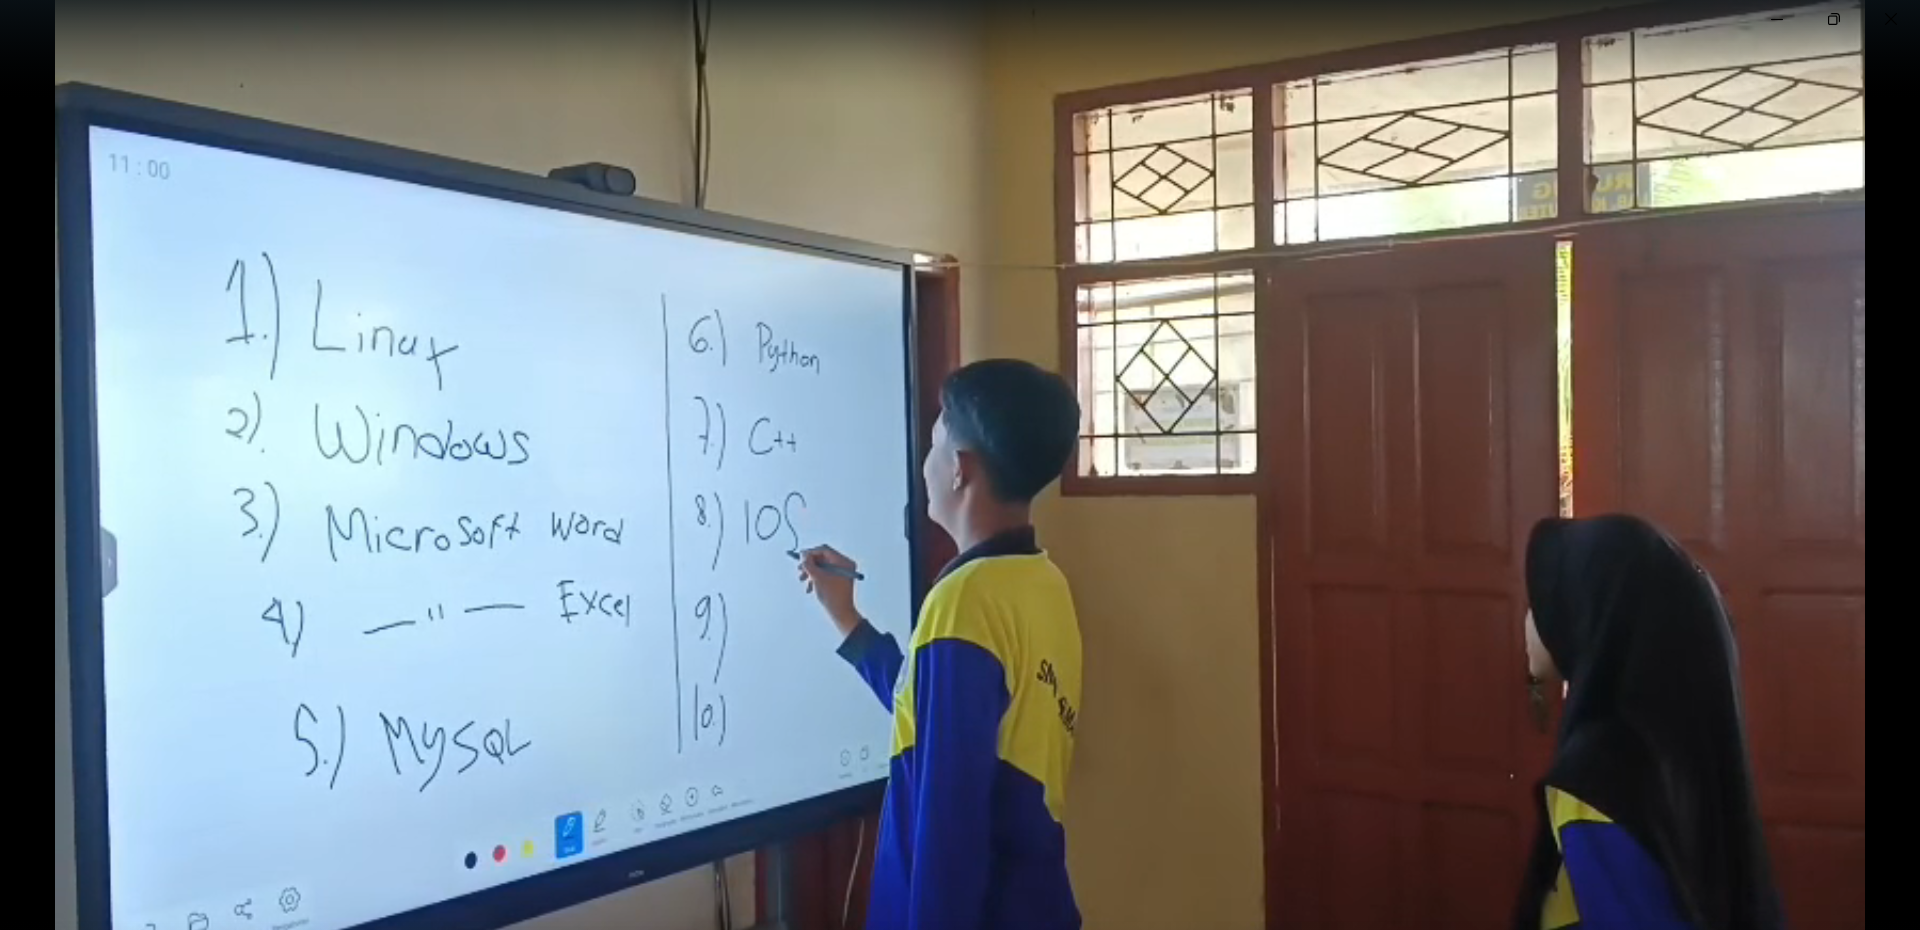 11:00
1.) Linux
2). Windows
3.) Microsoft Word
4) —"— Excel
5.) MySQL
6.) Python
7.) C++
8.) IOS
9.)
10.)